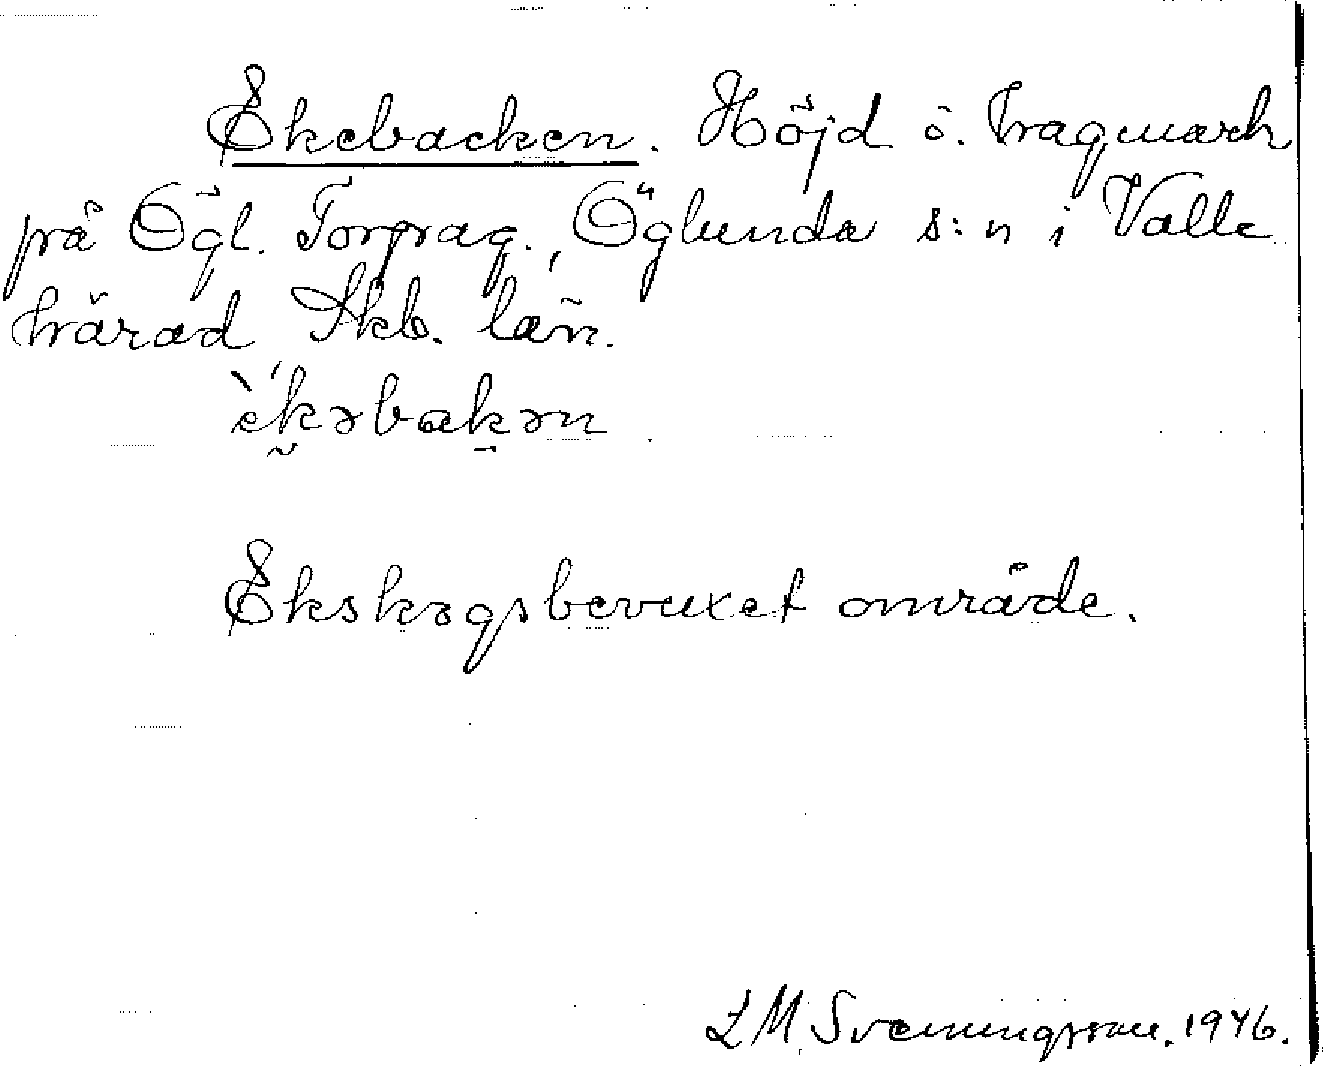 Ekebacken. Höjd o. hagmark
på Ögl. Torpag., Öglunda s:n i Valle
härad Skb. län.
èkəbakən
Ekskogsbevuxet område.
L M Svenningsson. 1946.